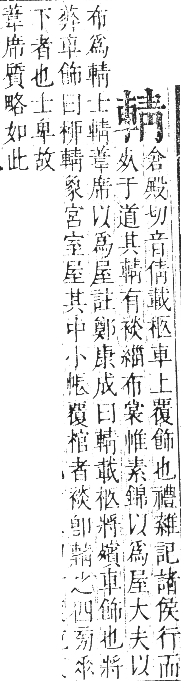 輤
倉殿切音倩載柩車上覆飾也禮雜記諸侯行而
死于道其輤有裧緇布裳帷素錦以為屋大夫以
布為輤士輤葦席以為屋註鄭康成曰輤載柩將殯車飾也將
葬車飾曰柳輤象宮室屋其中小帳覆棺者裧即輤之四旁來
下者也士卑故
葦席質略如此